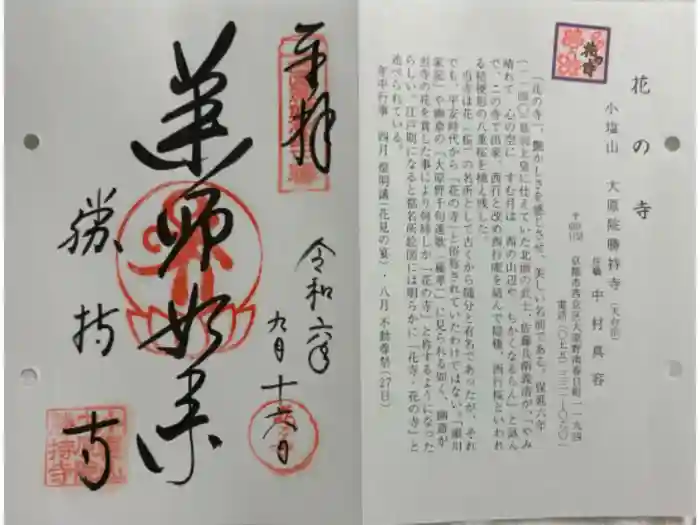 奉拝
薬師如来
勝持寺
令和六年
九月十六日
花の寺
小塩山 大原院勝持寺(天台宗)
住職 中村真容
京都市西京区大原野南春日町一一九四
電話(〇七五)三三一-〇六〇一
「花の寺」、艶かしさを感じさせ、美しい名前である。保延六年
(一一四〇)鳥羽上皇に仕えていた北面の武士、佐藤兵衛義清が、「やみ
晴れて 心の空に すむ月は 西の山辺や ちかくなるらん」と詠ん
で、この寺で出家、西行と改め西行庵を結んで隠棲、西行桜といわれ
る枝垂桜の八重桜を植え残した。
当寺は花(桜)の名所として古くから随分と有名であったが、それ
でも、平安時代から「花の寺」と俗称されていたわけではない。「細川
家記」や幽斎の「大原野千句連歌(麗草)」に見られる如く、幽斎が
当寺の花を賞した事により何時しか「花の寺」と称するようになった
らしい。江戸期になると都名所絵図には明らかに「花寺・花の寺」と
述べられている。
年中行事 四月 桜明議(花見の宴)・八月 不動尊祭(27日)